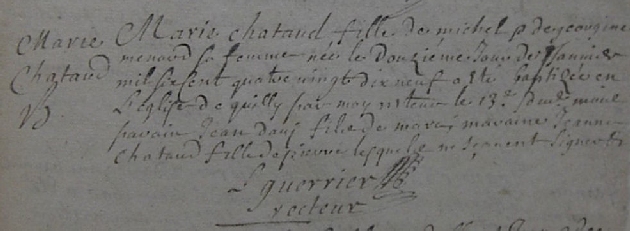 Marie Chataud B
Marie chataud fille de michel & de georgine
menard sa femme née le douzieme jour de Jannier
mil sixsent quatre vingt dix neuf a été baptizée en
L'église de quilly par moy recteur le 13e du
parain Jean fils de maraine Jeanne
chataud fille de pierre lesquels ne sçauent signer
L guerrier
recteur